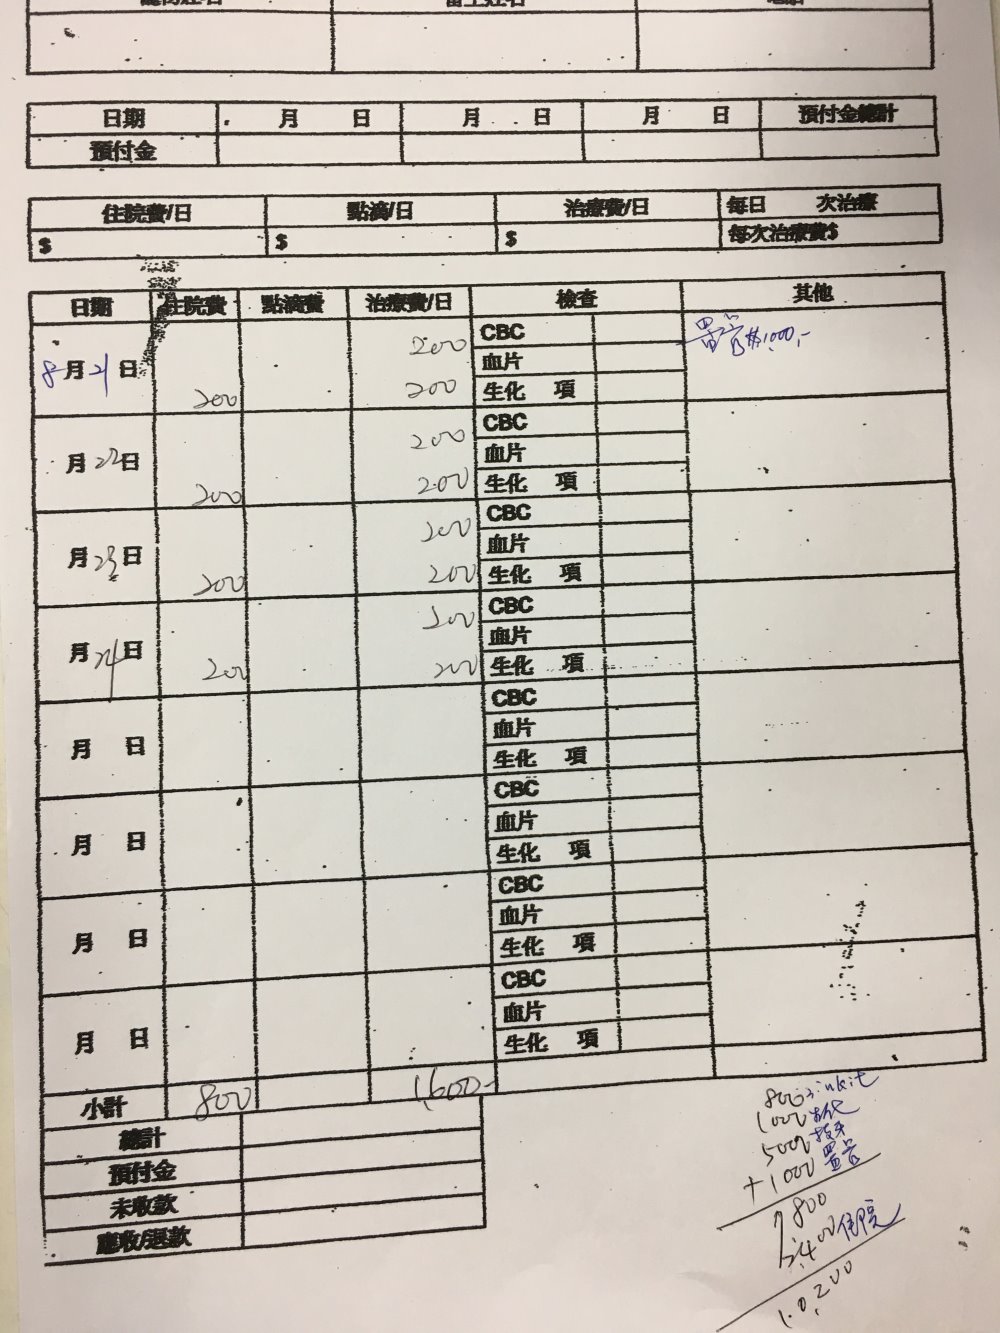 日期 月 日 月 日 月 日 預付金總計
預付金
住院費/日 點滴/日 治療費/日 每日 次治療
$ $ $ 每次治療費$
日期 住院費 點滴費 治療費/日 檢查 其他
8月21日 200 200 200 CBC 置管$1000,-
血片
生化 項
月22日 200 200 200 CBC
血片
生化 項
月23日 200 200 200 CBC
血片
生化 項
月24日 200 200 200 CBC
血片
生化 項
月 日 CBC
血片
生化 項
月 日 CBC
血片
生化 項
月 日 CBC
血片
生化 項
月 日 CBC
血片
生化 項
小計 800 1,600-
總計
預付金
未收款
應收/退款
800
1000
5000
+1000 置管
7800
2,400 住院
10,200